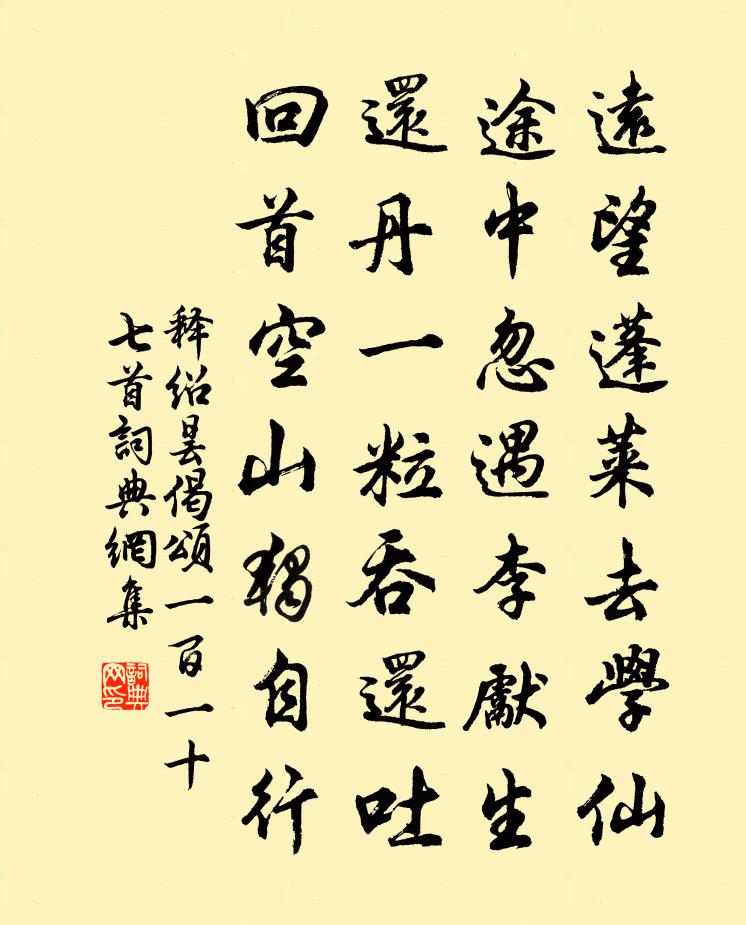 遠望蓬萊去學仙
途中忽遇李獻生
還丹一粒吞還吐
回首空山獨自行
释紹曇偈頌一百一十
七首詞典網集
詞典網印